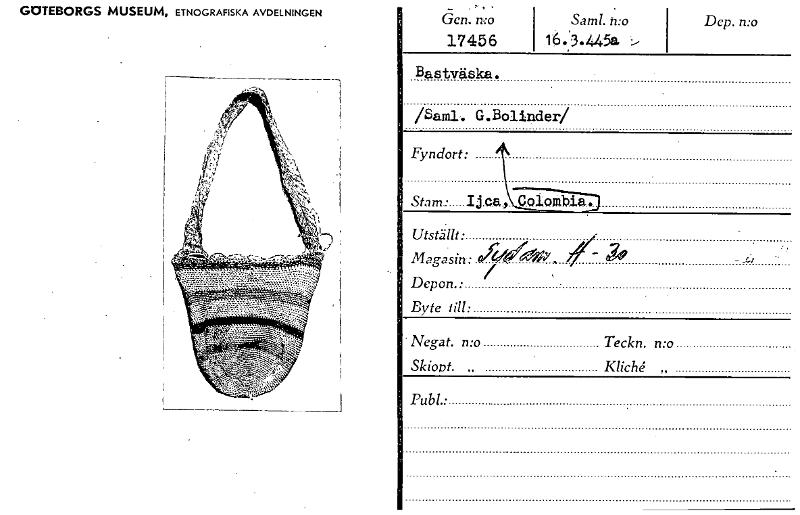 GÖTEBORGS MUSEUM, ETNOGRAFISKA AVDELNINGEN
Gen. n:o Saml. n:o Dep. n:o
17456 16.3.445a
Bastväska.
/Saml. G.Bolinder/
Fyndort:
Stam: Ijca, Colombia.
Utställt:
Magasin: Sydam. H - 30
Depon.:
Byte till:
Negat. n:o Teckn. n:o
Skiopt. „ Kliché „
Publ.: